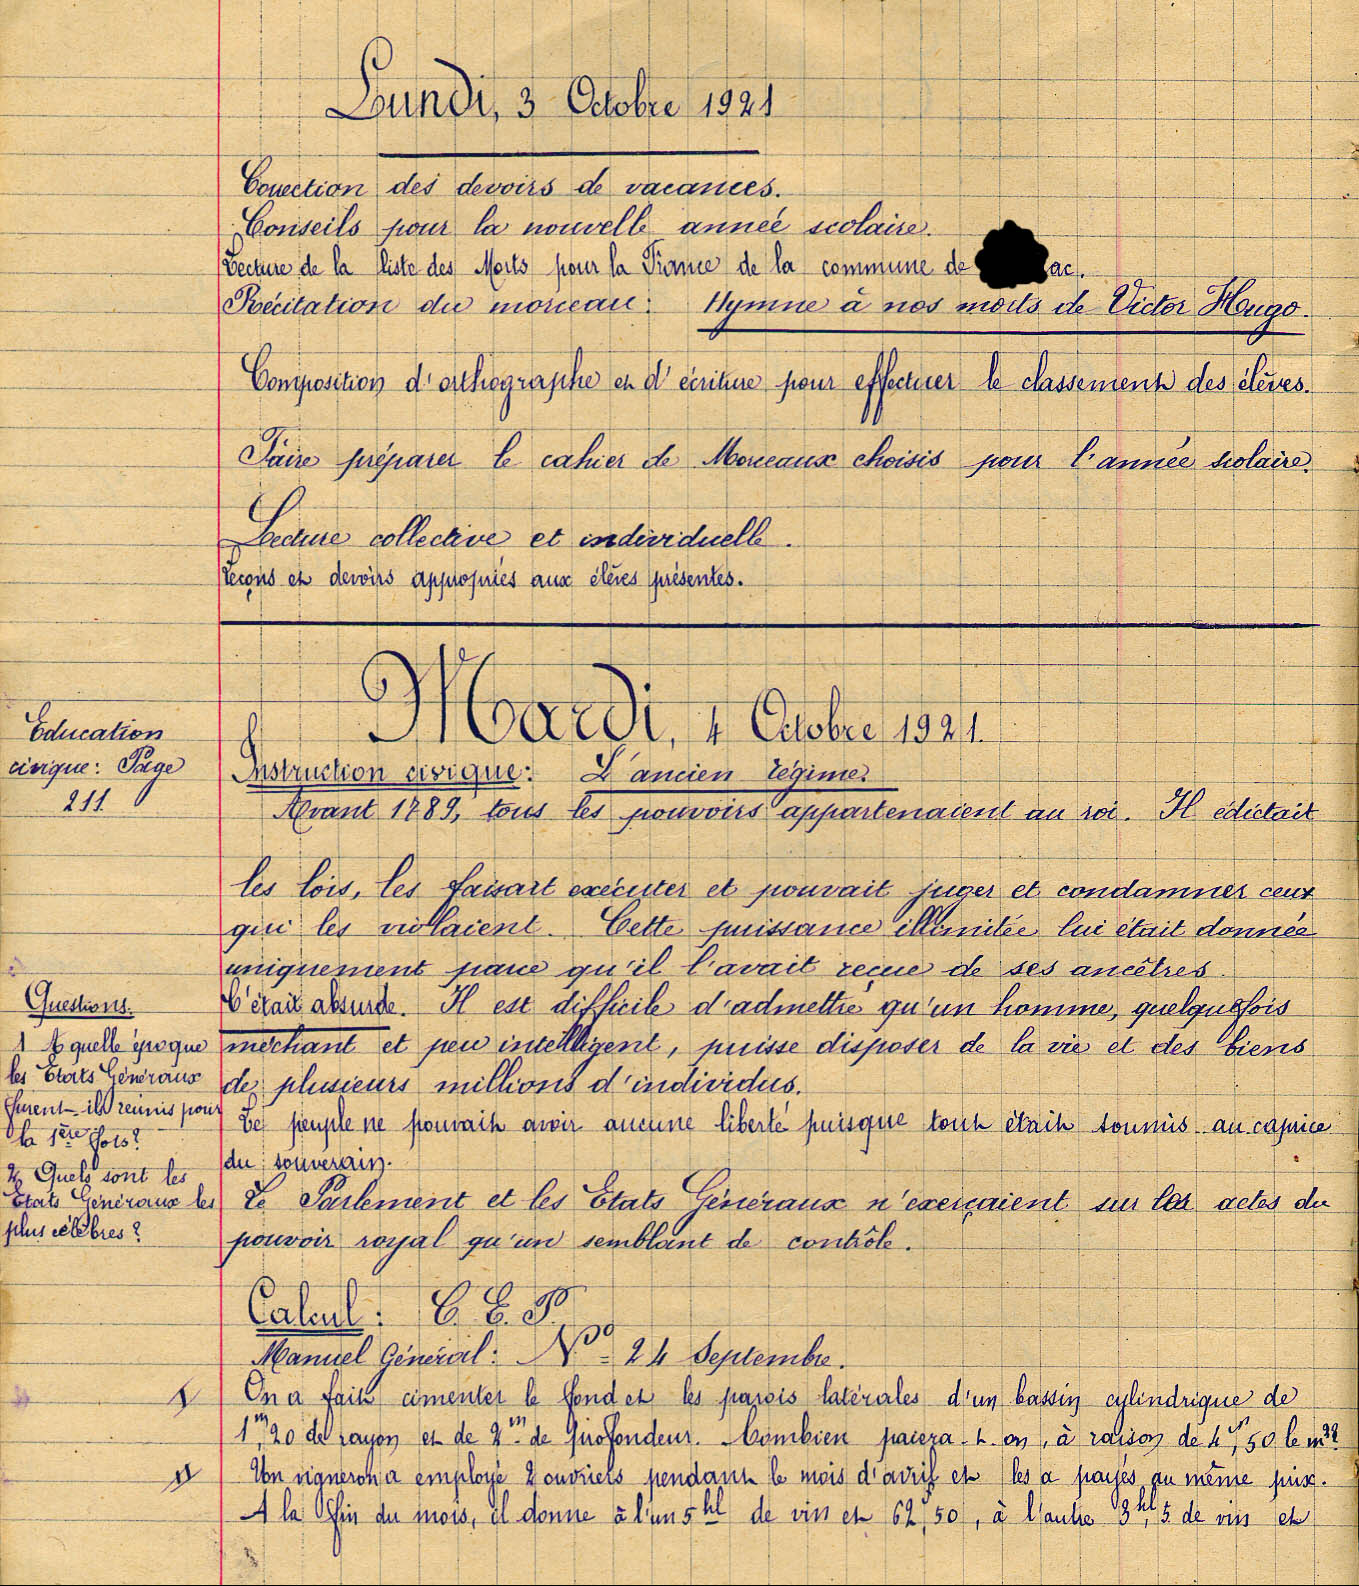 Lundi, 3 Octobre 1921
Correction des devoirs de vacances.
Conseils pour la nouvelle année scolaire.
Lecture de la liste des Morts pour la France de la commune de ac.
Récitation du morceau : Hymne à nos morts de Victor Hugo.
Composition d'orthographe et d'écriture pour effectuer le classement des élèves.
Faire préparer le cahier de Morceaux choisis pour l'année scolaire.
Lecture collective et individuelle.
Leçons et devoirs appropriés aux élèves présentes.
Mardi, 4 Octobre 1921.
Education
civique : Page
211.
Instruction civique : L'ancien régime.
Avant 1789, tous les pouvoirs appartenaient au roi. Il édictait
les lois, les faisait exécuter et pouvait juger et condamner ceux
qui les violaient. Cette puissance illimitée lui était donnée
uniquement parce qu'il l'avait reçue de ses ancêtres.
C'était absurde. Il est difficile d'admettre qu'un homme, quelquefois
méchant et peu intelligent, puisse disposer de la vie et des biens
de plusieurs millions d'individus.
Le peuple ne pouvait avoir aucune liberté puisque tout était soumis au caprice
du souverain.
Le Parlement et les Etats Généraux n'exerçaient sur les actes du
pouvoir royal qu'un semblant de contrôle.
Questions.
1 A quelle époque
les Etats Généraux
furent-ils réunis pour
la 1ère fois ?
2 Quels sont les
Etats Généraux les
plus célèbres ?
Calcul : C. E. P.
Manuel Général : No = 24 Septembre.
I On a fait cimenter le fond et les parois latérales d'un bassin cylindrique de
1m,20 de rayon et de 2m de profondeur. Combien paiera-t-on, à raison de 4f,50 le m2?
II Un vigneron a employé 2 ouvriers pendant le mois d'avril et les a payés au même prix.
A la fin du mois, il donne à l'un 5hl de vin et 62f,50, à l'autre 3hl,5 de vin et